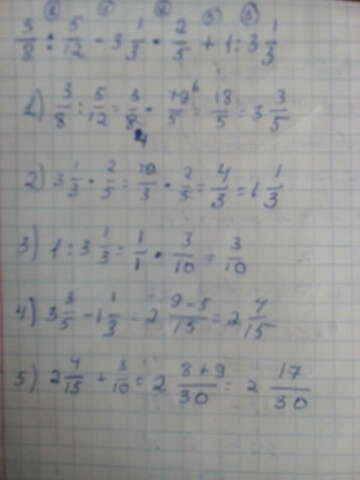 3/8 : 5/12 - 3 1/3 · 2/5 + 1 : 3 1/3
1) 3/8 : 5/12 = 3/8 · 12/5 = 18/5 = 3 3/5
2) 3 1/3 · 2/5 = 10/3 · 2/5 = 4/3 = 1 1/3
3) 1 : 3 1/3 = 1/1 · 3/10 = 3/10
4) 3 3/5 - 1 1/3 = 2 9-5/15 = 2 4/15
5) 2 4/15 + 3/10 = 2 8+9/30 = 2 17/30